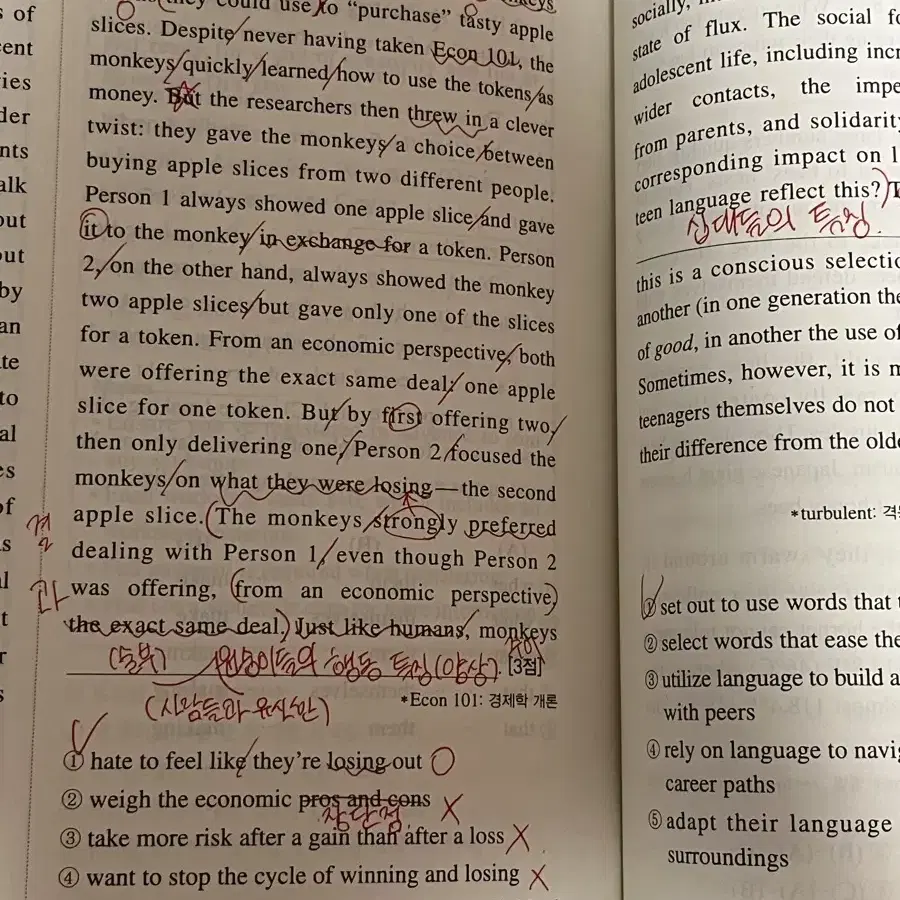 s of
cent
ries
der
nts
alk
out
out
by
an
te
to
al
es
of
s
l
t
r
s
they could use to “purchase” tasty apple
slices. Despite never having taken Econ 101, the
monkeys quickly learned how to use the tokens as
money. But the researchers then threw in a clever
twist: they gave the monkeys a choice between
buying apple slices from two different people.
Person 1 always showed one apple slice and gave
it to the monkey in exchange for a token. Person
2, on the other hand, always showed the monkey
two apple slices but gave only one of the slices
for a token. From an economic perspective, both
were offering the exact same deal: one apple
slice for one token. But by first offering two,
then only delivering one, Person 2 focused the
monkeys on what they were losing—the second
apple slice. The monkeys strongly preferred
dealing with Person 1, even though Person 2
was offering, from an economic perspective,
the exact same deal. Just like humans, monkeys
[3점]
결
과
(동부) 원숭이들의 행동 특징(양상).
(사람들과 유사한)
*Econ 101: 경제학 개론
① hate to feel like they’re losing out
② weigh the economic pros and cons
장단점
③ take more risk after a gain than after a loss
④ want to stop the cycle of winning and losing
socially,
state of flux. The social fo
adolescent life, including incr
wider contacts, the impe
from parents, and solidarity
corresponding impact on l
teen language reflect this? T
십대들의 특징.
this is a conscious selectio
another (in one generation the
of good, in another the use of
Sometimes, however, it is m
teenagers themselves do not
their difference from the olde
*turbulent: 격
① set out to use words that t
② select words that ease the
③ utilize language to build a
with peers
④ rely on language to navig
career paths
⑤ adapt their language
surroundings